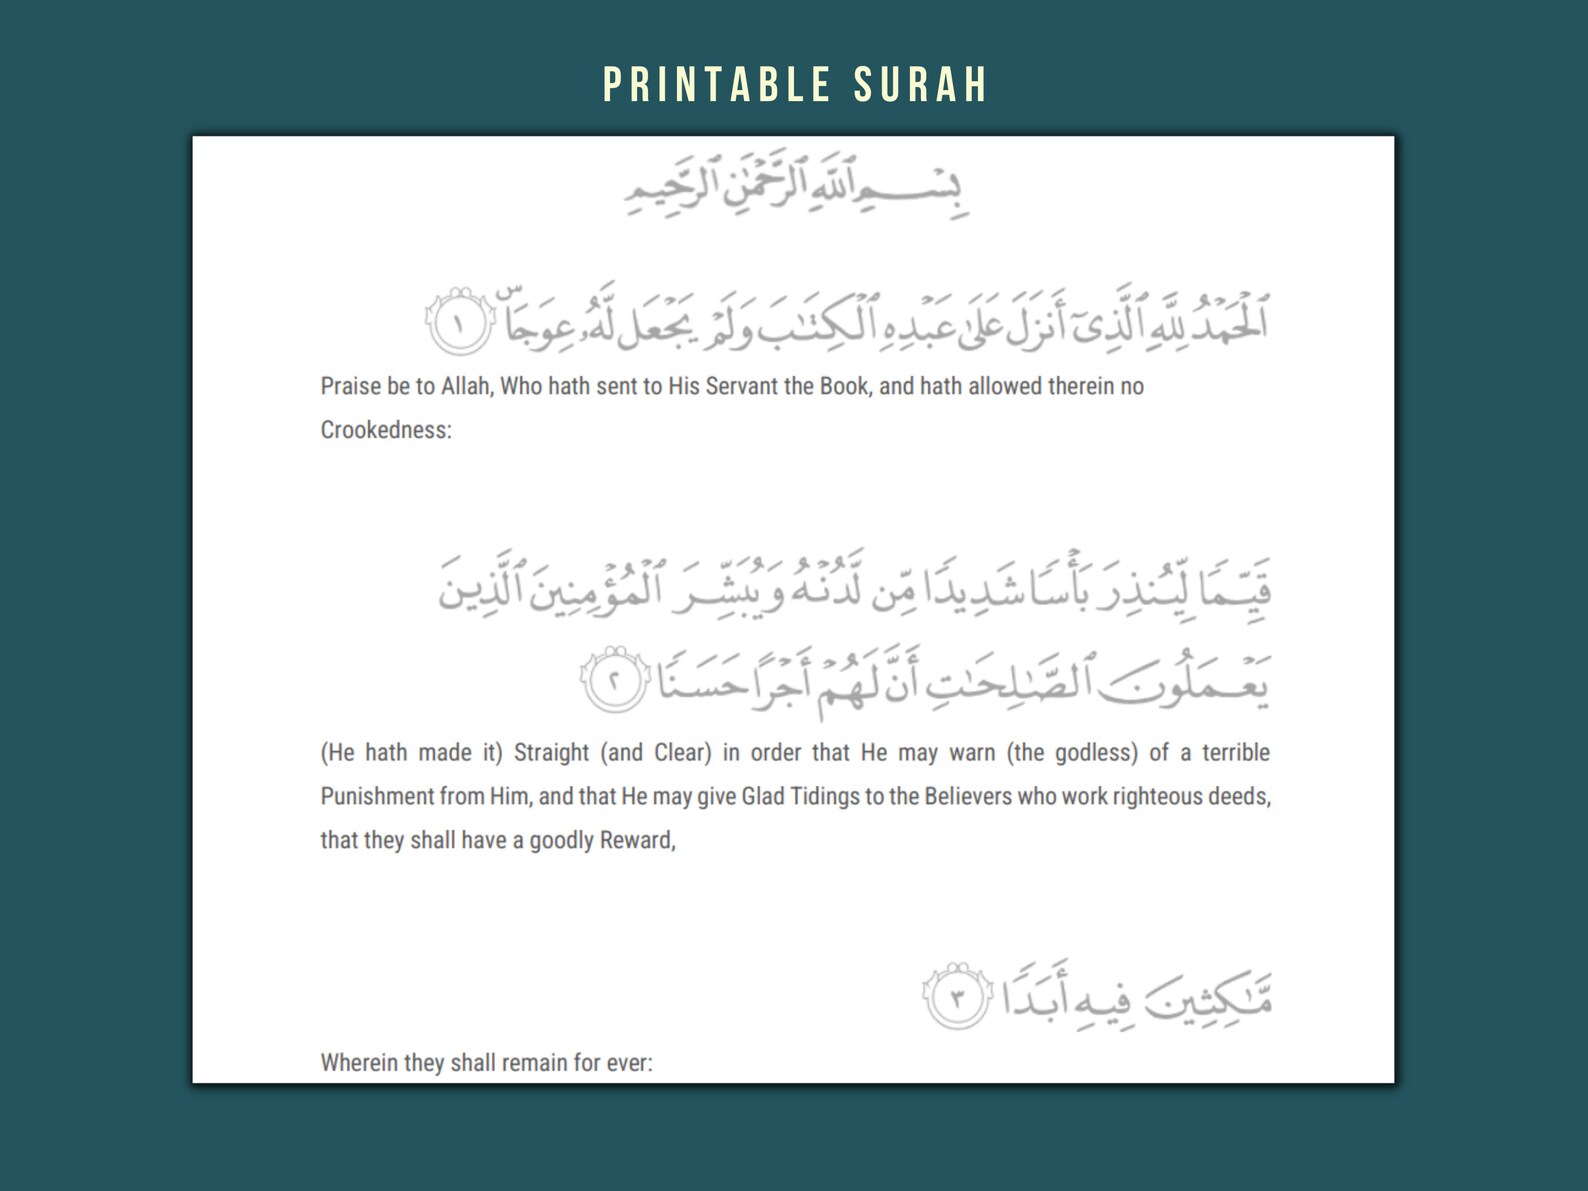 PRINTABLE SURAH
بِسْمِ ٱللَّهِ ٱلرَّحْمَٰنِ ٱلرَّحِيمِ
ٱلْحَمْدُ لِلَّهِ ٱلَّذِىٓ أَنزَلَ عَلَىٰ عَبْدِهِ ٱلْكِتَٰبَ وَلَمْ يَجْعَل لَّهُۥ عِوَجَاۜ ١
Praise be to Allah, Who hath sent to His Servant the Book, and hath allowed therein no
Crookedness:
قَيِّمًا لِّيُنذِرَ بَأْسًا شَدِيدًا مِّن لَّدُنْهُ وَيُبَشِّرَ ٱلْمُؤْمِنِينَ ٱلَّذِينَ
يَعْمَلُونَ ٱلصَّٰلِحَٰتِ أَنَّ لَهُمْ أَجْرًا حَسَنًا ٢
(He hath made it) Straight (and Clear) in order that He may warn (the godless) of a terrible
Punishment from Him, and that He may give Glad Tidings to the Believers who work righteous deeds,
that they shall have a goodly Reward,
مَّٰكِثِينَ فِيهِ أَبَدًا ٣
Wherein they shall remain for ever: